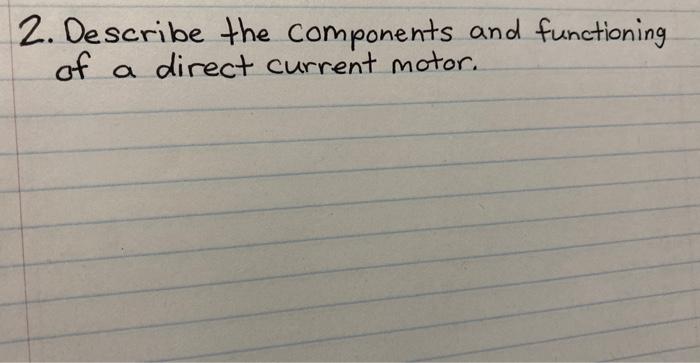 2. Describe the components and functioning
of a direct current motor.